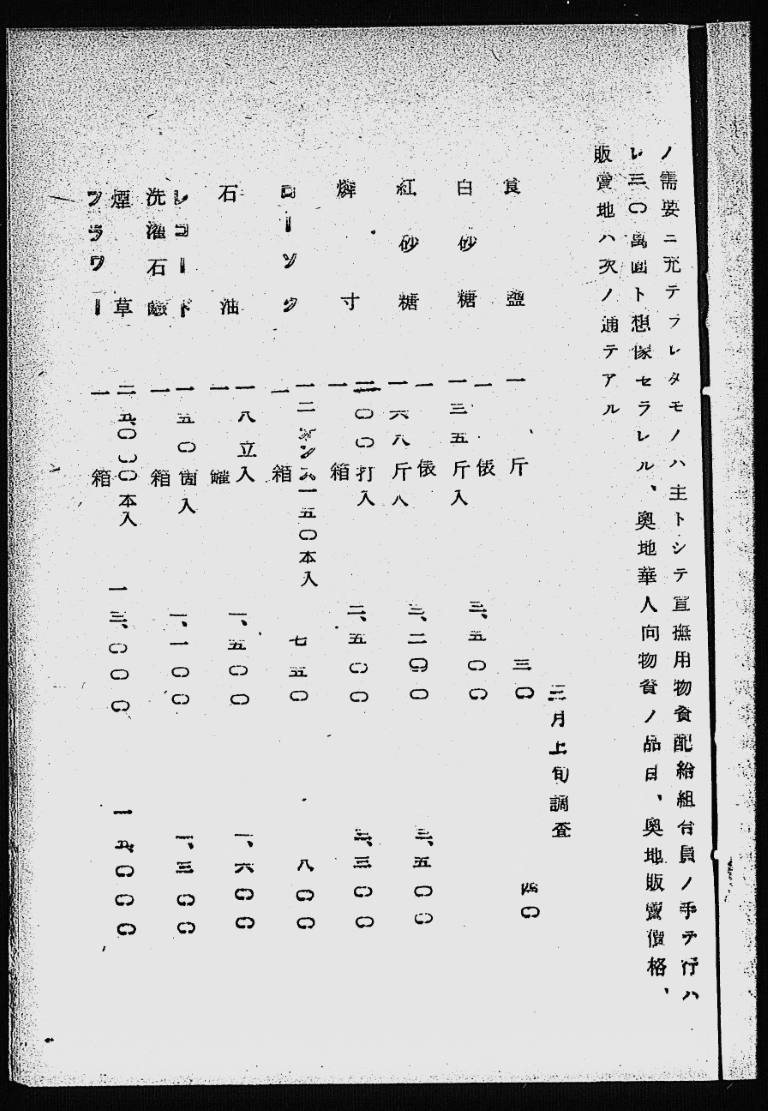 ノ需要ニ充テラレタモノハ主トシテ宣撫用物資配給組合員ノ手テ行ハ
レ三〇萬圓ト想像セラレル、奥地華人向物資ノ品目、奥地販賣價格、
販賣地ハ次ノ通テアル
三月上旬調査
食鹽 一斤 三〇 四〇
白砂糖 一俵 一三五斤入 三、五〇〇
紅砂糖 一俵 一六八斤入 三、二〇〇 三、五〇〇
燐寸 一箱 二〇〇打入 二、五〇〇 三、三〇〇
ローソク 一箱 一二オンス一五〇本入 七五〇 八〇〇
石油 一罐 一八立入 一、五〇〇 一、六〇〇
レコード
洗濯石鹸 一箱 一五〇箇入 一、一〇〇 一、三〇〇
煙草
フラワー 一箱 二五、〇〇〇本入 一三、〇〇〇 一五、〇〇〇